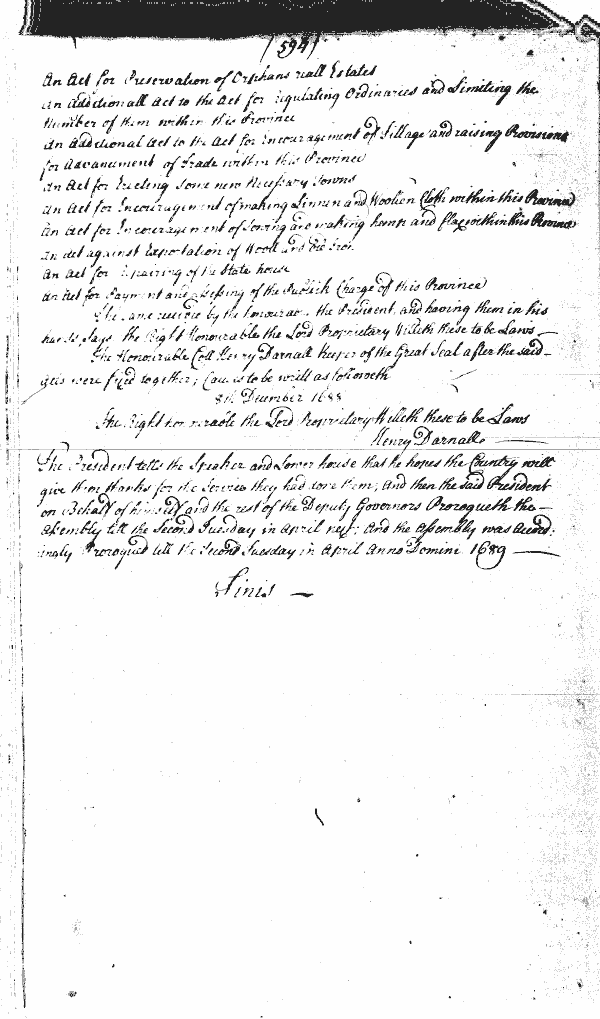 (594)
An Act for Preservation of Orphans reall Estates
An Additionall Act to the Act for regulating Ordinaries and Limiting the
Number of them within this Province
An Additional Act to the Act for Encouragement of Tillage and raising Provisions
for Advancement of Trade within this Province
An Act for Erecting Some new Necessary Towns
An Act for Encouragement of making Linnen and Woollen Cloth within this Province
An Act for Encouragement of Sowing and making hemp and flax within this Province
An Act against Exportation of Wooll and Old Iron
An Act for Repairing of the State house
An Act for Payment and assessing of the Publick Charge of this Province
The same received by the honourable the President, and having them in his
hands says the Right Honourable the Lord Proprietary Willeth these to be Laws
The Honourable Coll Henry Darnall Keeper of the Great Seal after the said
Acts were fixed together, Caused to be writt as followeth
8th December 1688
The Right honourable the Lord Proprietary Willeth these to be Laws
Henry Darnall
The President tells the Speaker and Lower house that he hopes the Country will
give them thanks for the Services they had done them; And then the said President
on Behalf of himself and the rest of the Deputy Governors Prorogueth the
Assembly till the Second Tuesday in April next; And the Assembly was Accord:
ingly Prorogued till the Second Tuesday in April Anno Domini 1689
Finis